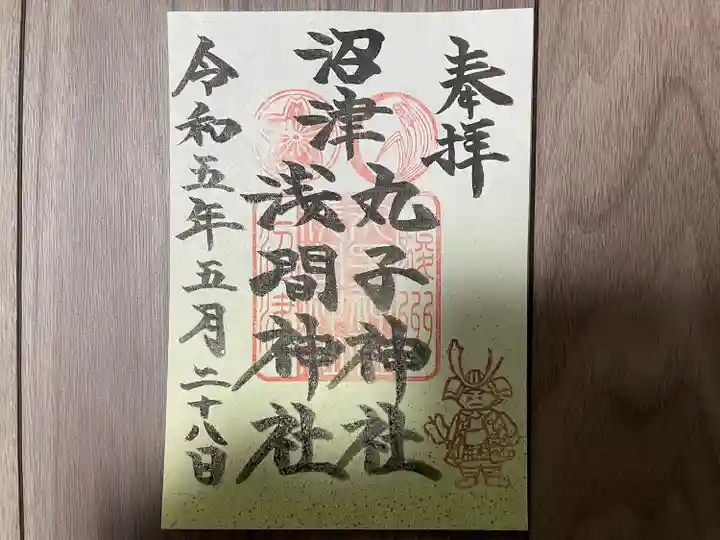 奉拝
沼津
丸子神社
浅間神社
令和五年五月二十八日